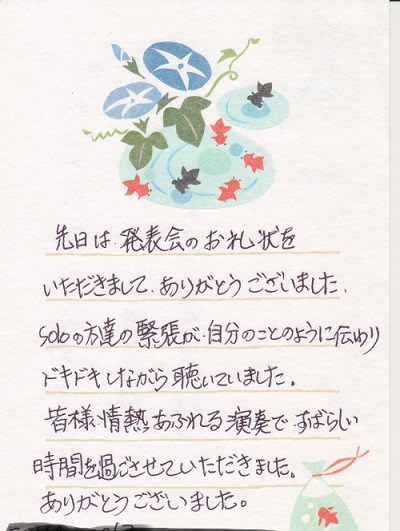 先日は、発表会のお礼状を
いただきまして、ありがとうございました。
soloの方達の緊張が、自分のことのように伝わり
ドキドキしながら聴いていました。
皆様、情熱あふれる演奏で、すばらしい
時間を過ごさせていただきました。
ありがとうございました。